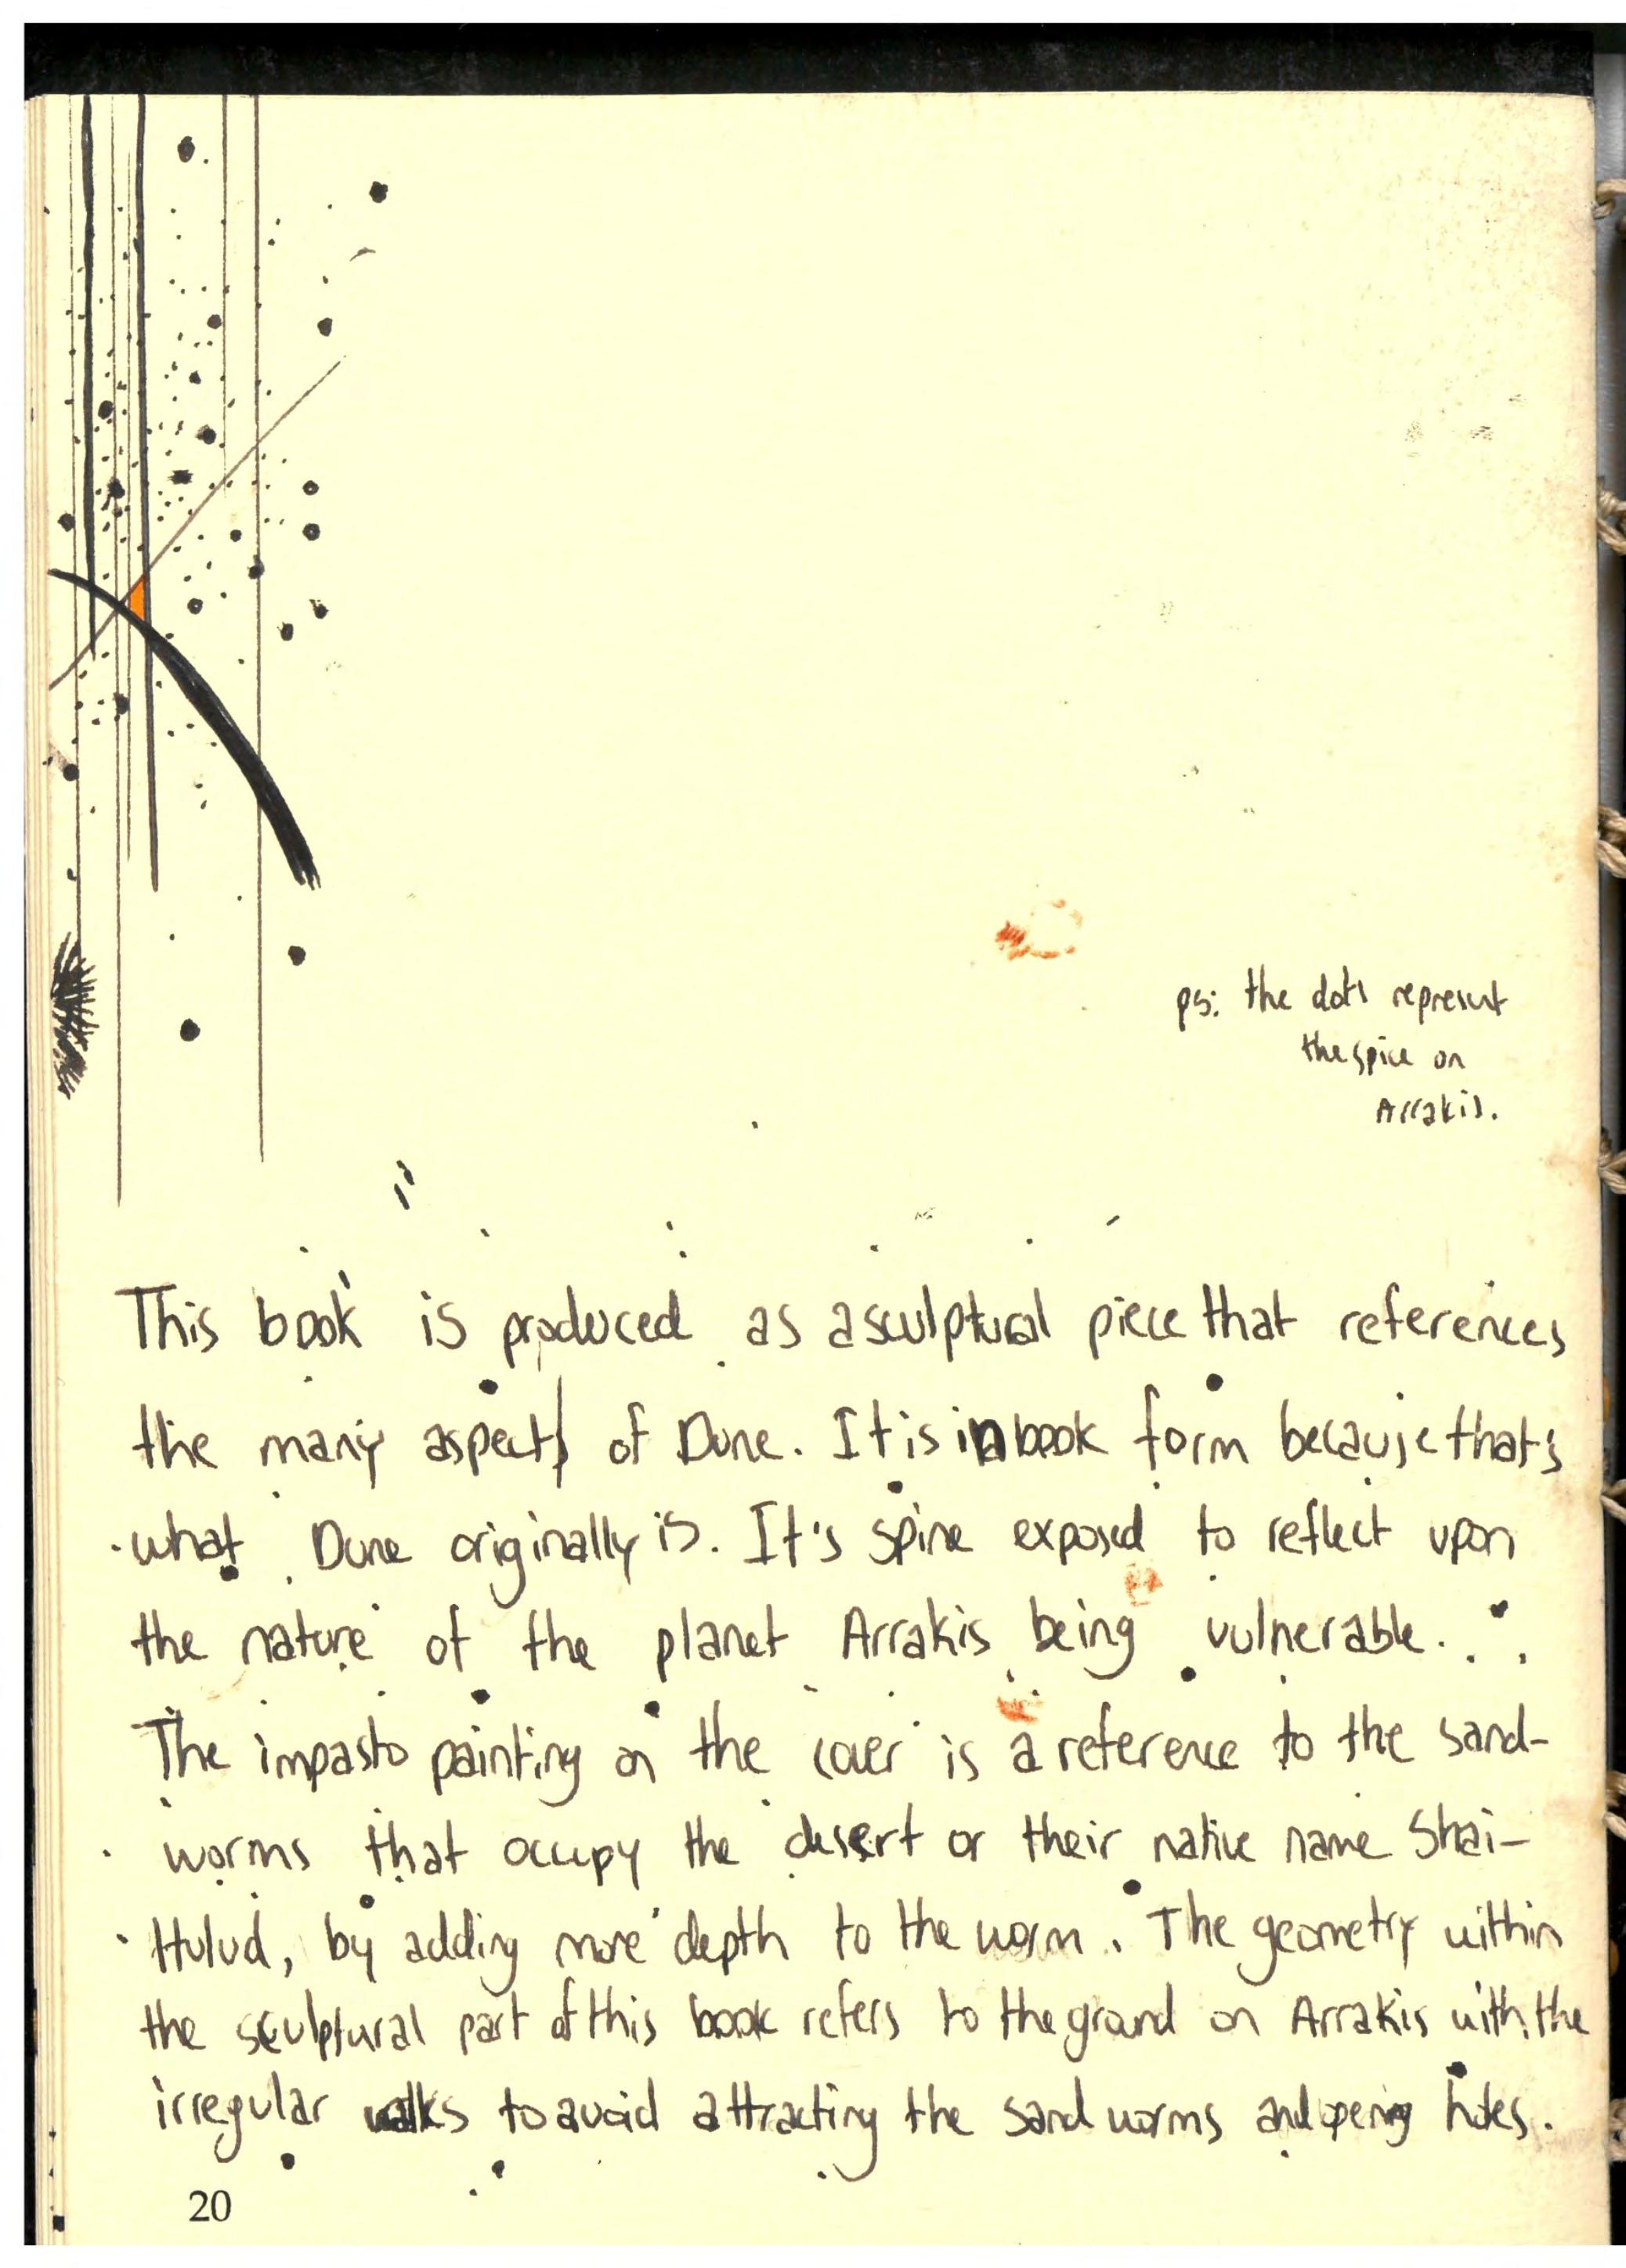 ps: the dots represent
the spice on
Arrakis.
This book is produced as a sculptural piece that references
the many aspects of Dune. It is in book form because that's
what Dune originally is. It's spine exposed to reflect upon
the nature of the planet Arrakis being vulnerable.
The impasto painting on the cover is a reference to the sand-
worms that occupy the desert or their native name Shai-
Hulud, by adding more depth to the worm. The geometry within
the sculptural part of this book refers to the ground on Arrakis with the
irregular walks to avoid attracting the sand worms and opening holes.
20